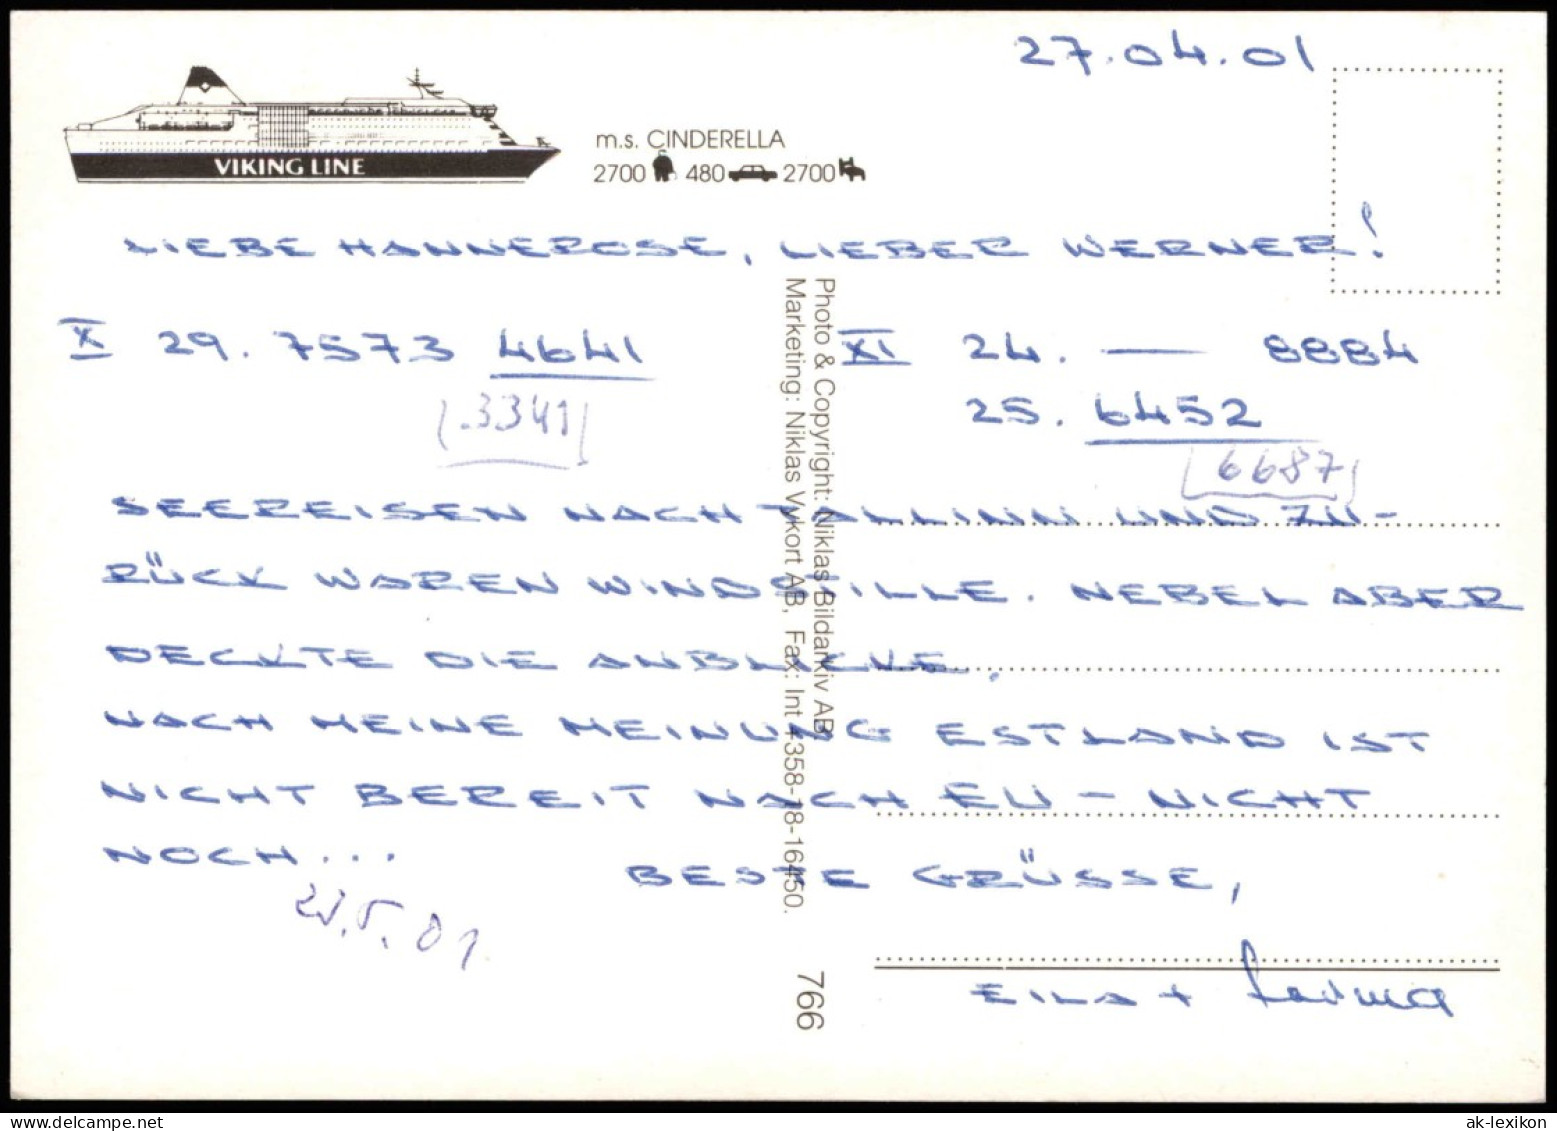 27.04.01
VIKING LINE
m.s. CINDERELLA
2700 480 2700
LIEBE HANNEROSE, LIEBER WERNER!
X 29. 7573 4641
(.3341)
XI 24. — 8884
25. 6452
(6687)
SEEREISEN NACH TALLINN UND ZU-
RÜCK WAREN WINDSTILLE. NEBEL ABER
DECKTE DIE ANBLICKE.
NACH MEINE MEINUNG ESTLAND IST
NICHT BEREIT NACH EU – NICHT
NOCH... BESTE GRÜSSE,
EILA +
Photo & Copyright: Niklas Bildarkiv AB
Marketing: Niklas Vykort AB, Fax: Int +358-18-16450.
766
ak-lexikon.com